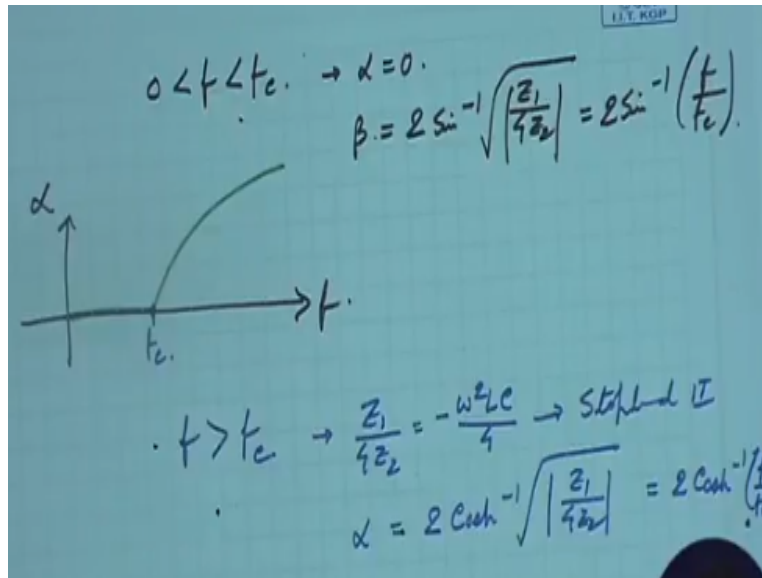 I.I.T. KGP
0 < f < fc. → α = 0.
β = 2 Sin⁻¹ √|Z₁/4Z₂| = 2 Sin⁻¹ (f/fc).
α
f.
fc.
. f > fc → Z₁/4Z₂ = -ω²LC/4 → Stopband II
α = 2 Cosh⁻¹ √|Z₁/4Z₂| = 2 Cosh⁻¹ (